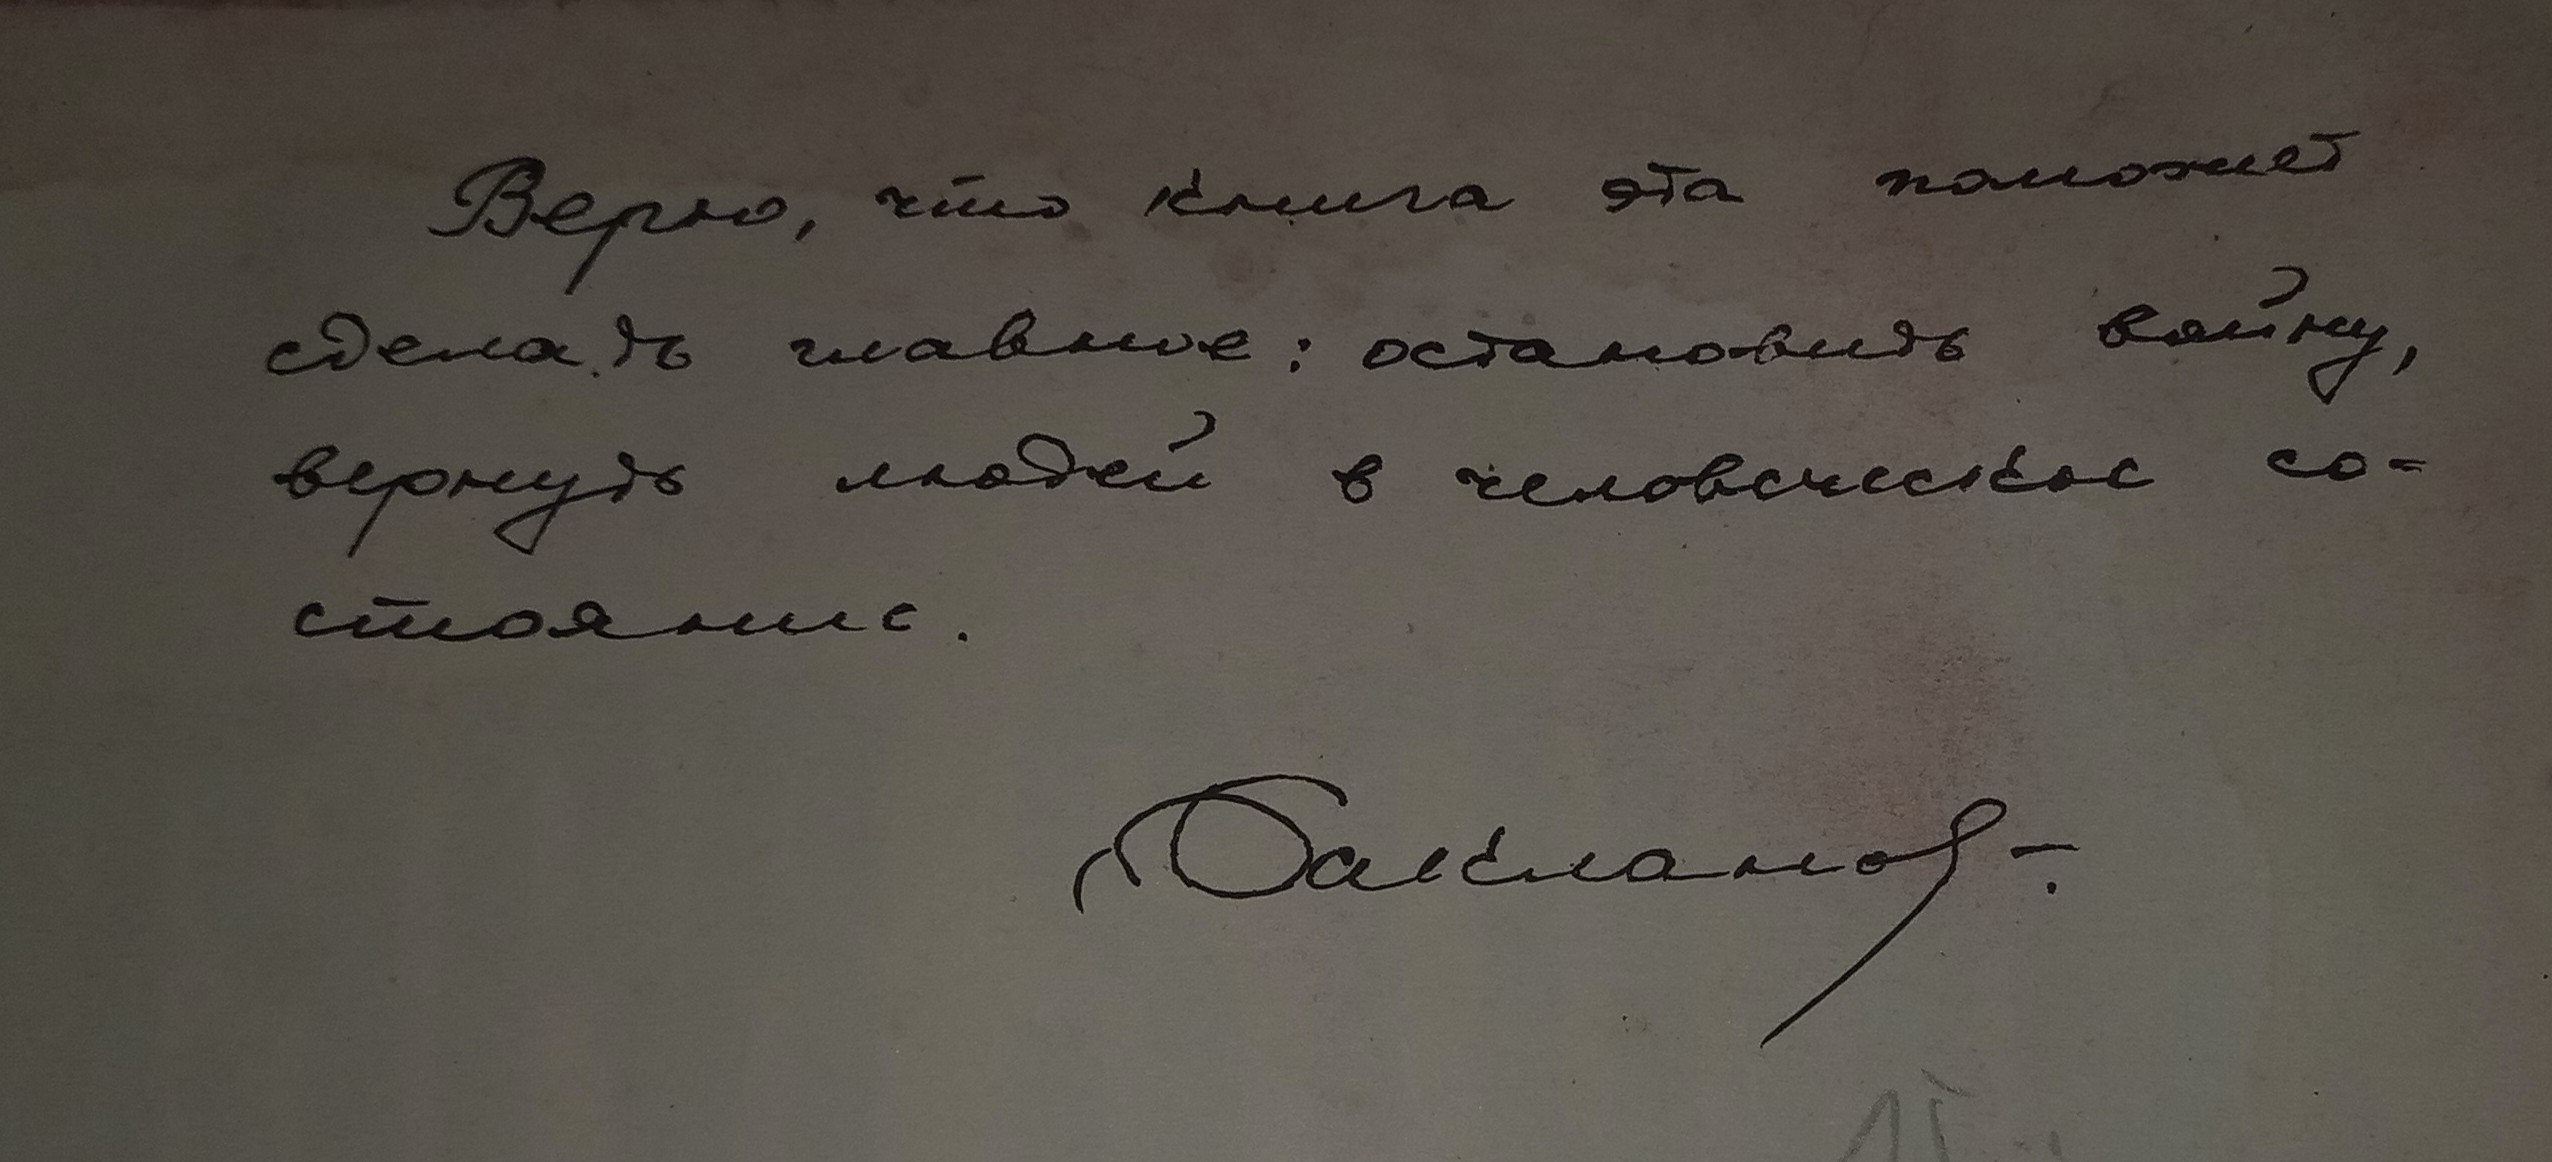 Верю, что книга эта поможет
сделать главное: остановить войну,
вернуть людей в человеческое со-
стояние.
Бакланов.